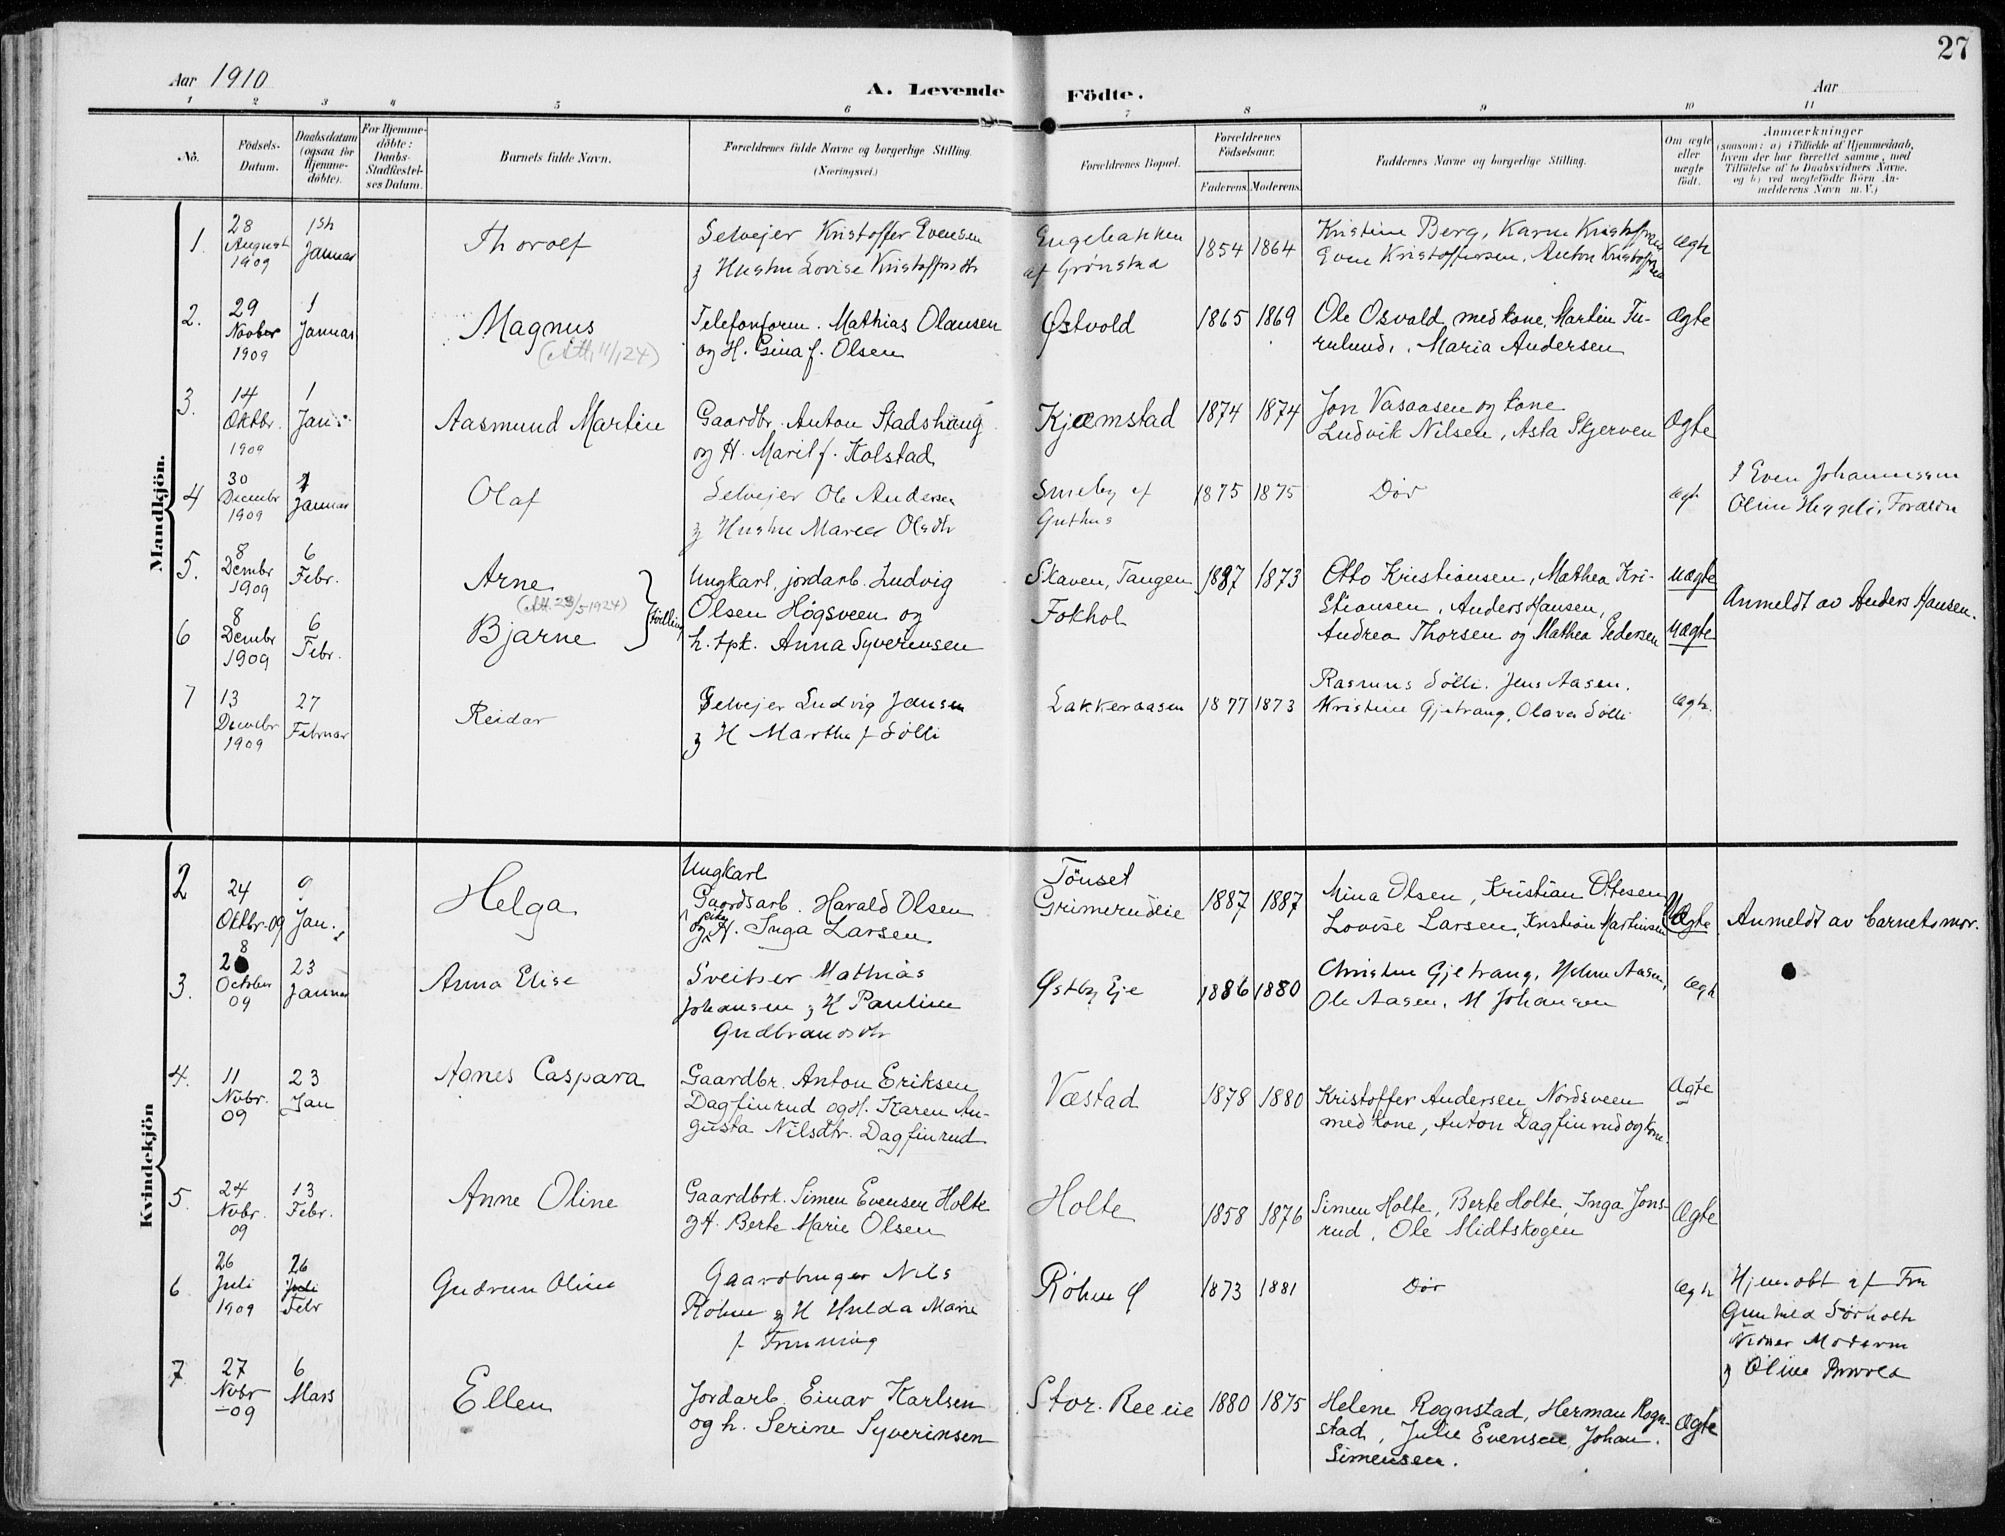 27
Aar 1910
A. Levende Födte.
Aar
1 2 3 4 5 6 7 8 9 10 11
No.
Födsels-Datum.
Daabsdatum (ogsaa for Hjemme-döbte).
For Hjemme-döbte: Daabs-Stadfæstel-ses Datum.
Barnets fulde Navn.
Forældrenes fulde Navne og borgerlige Stilling. (Næringsvei.)
Forældrenes Bopæl.
Forældrenes Födselsaar.
Faderens. Moderens.
Faddernes Navne og borgerlige Stilling.
Om ægte eller uægte födt.
Anmærkninger
(saasom: a) i Tilfælde af Hjemmedaab,
hvem der har forrettet samme, med
Tilföielse af to Daabsvidners Navne,
og b) ved uægtefödte Börn An-
melderens Navn m. V.)
Mandkjön.
1. 28 August 1909
1ste Januar
Thorolf
Selvejer Kristoffer Evensen
og Hustru Lovise Kristoffersdtr
Engebakken
af Grønstad
1854 1864
Kristine Berg, Karen Kristoffersen
Even Kristoffersen, Anton Kristoffersen
ægte
2. 29 Novbr 1909
1 Januar
Magnus
(Att. 11/1 24)
Telefonform. Mathias Olausen
og H. Gina f. Olsen
Østvold
1865 1869
Ole Osvald med kone, Martin Fu-
rulund, Maria Andersen
Ægte
3. 14 Oktbr. 1909
1 Jan.
Aasmund Martin
Gaardbr. Anton Stadshaug
og H. Marit f. Kolstad
Kjæmstad
1874 1874
Jon Vasaasen og kone
Ludvik Nilsen, Asta Skjerven
Ægte
4 30 Decembr 1909
1 Januar
Olaf
Selvejer Ole Andersen
og Hustru Maren Olsdtr
Smeby af
Guthus
1875 1875
Død
ægt.
Even Johannessen
Oline
5. 8 Decmbr 1909
6 Febr.
Arne
(Att. 28/5 1924)
6 8 Decmbr 1909
6 Febr.
Bjarne
Tvilling
Ungkarl, jordarb. Ludvig
Olsen Högsveen og
h. tpk. Anna Syverinsen
Skaven, Tangen
Fokhol
1887 1873
Otto Kristiansen, Mathea Kri-
stiansen, Anders Hansen,
Andrea Thorsen og Mathea Pedersen
Uægte
Uægte
Anmeldt av Anders Hansen.
7 13 Decembr 1909
27 Februar
Reidar
Selvejer Ludvig Jansen
og H Marthe f Sölli
Lakkeraasen
1877 1873
Rasmus Sölli. Jens Aasen.
Kristine Gjetrang, Olava Sölli
ægte.
Kvindekjön
2 24 Oktbr. 09
9 Jan.
Helga
Ungkarl
Gaardsarb. Harald Olsen
og pike Inga Larsen
Tönset
Grimerudeie
1887 1887
Mina Olsen, Kristian Ottesen
Lovise Larsen, Kristian Martinsen
Uægte
Anmeldt av barnets mor.
3. 28 October 09
23 Januar
Anna Elise
Sveitser Mathias
Johansen og H Pauline
Gudbrandsdtr
Østby Eje
1886 1880
Christine Gjetrang, Helene Aasen,
Ole Aasen, M Johansen
ægte
4. 11 Novbr. 09
23 Jan
Agnes Caspara
Gaardbr. Anton Eriksen
Dagfinrud og H. Karen Au-
gusta Nilsdtr. Dagfinrud
Væstad
1878 1880
Kristoffer Andersen Nordsveen
med kone, Anton Dagfinrud og kone.
Ægte
5. 24 Novbr. 09
13 Febr.
Anne Oline
Gaardbrk. Simen Evensen Holte
og H. Berte Marie Olsen
Holte
1858 1876
Simen Holte, Berte Holte, Inga Jons-
rud, Ole Midtskogen
Ægte
6 26 Juli 1909
26 Febr
Gudrun Oline
Gaardbruger Nils
Röhne og H Hulda Marie
f
Röhne Ø
1873 1881
Død
ægte
Hjemdøbt af Fru
Gunhild Sörholte
og Oline
7. 27 Novbr - 09
6 Mars
Ellen
Jordarb. Einar Karlsen
og h. Serine Syverinsen
Stor-Ree eie
1880 1875
Helene Rognstad, Herman Rogn-
stad, Julie Evensen, Johan.
Simensen.
Ægte